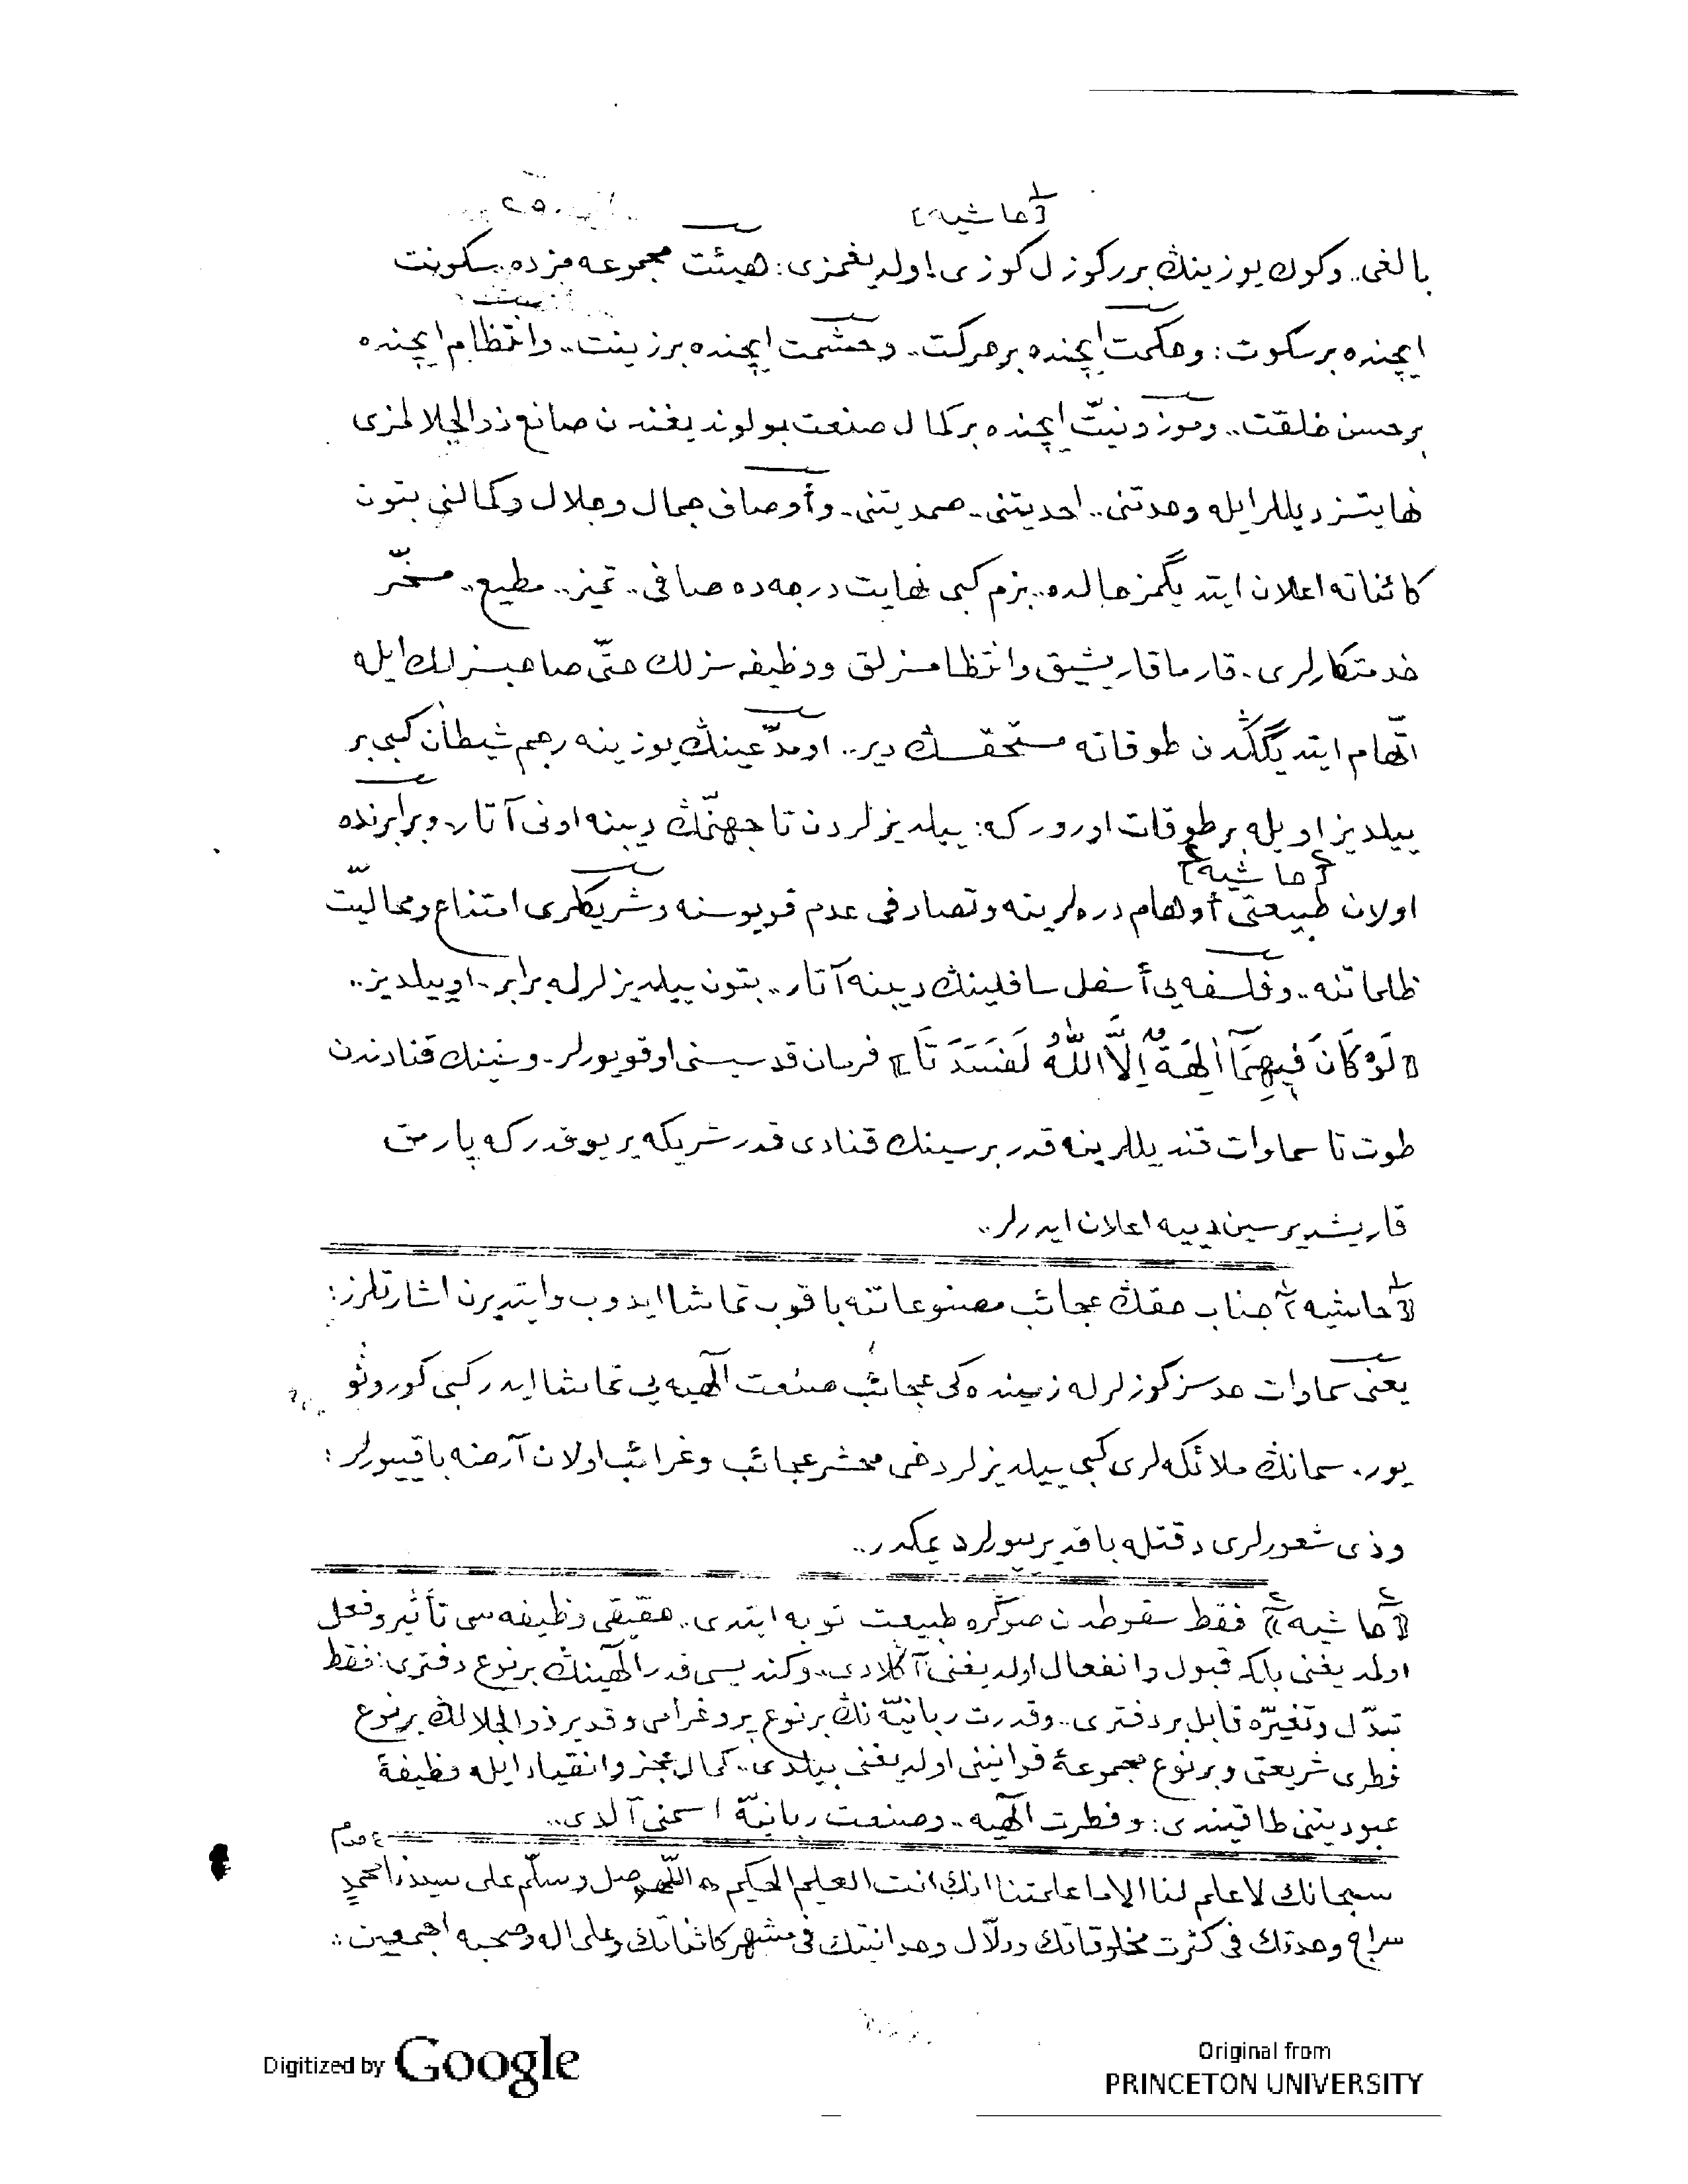 ٢٥
[حاشيه]١
بالغى.. وكوك يوزينڭ برر كوزل كوزى! اولديغمزى: هيئت مجموعه مزده سكونت
ايچنده بر سكوت: وحكمت ايچنده بر حركت.. وحشمت ايچنده بر زينت.. وانتظام ايچنده
بر حسن خلقت.. وموزونيتّ ايچنده بر كمال صنعت بولونديغندن صانع ذوالجلالمزى
نهايتسز ديللر ايله وحدتنى.. احديتنى.. صمديتنى.. وأوصاف جمال وجلال وكمالنى بتون
كائناته اعلان ايتديگمز حالده.. بزم كبى نهايت درجه ده صافى.. تميز.. مطيع.. مسخّر
خدمتكارلرى.. قارماقاريشيق وانتظامسزلق ووظيفه سزلك حتّى صاحبسزلك ايله
اتّهام ايتديگڭدن طوقاته مستحقسڭ دير.. او مدّعينڭ يوزينه رجم شيطان كبى بر
ييلديز اويله بر طوقات اورور كه: ييلديزلردن تا جهنّمڭ ديبنه اونى آتار. وبرابرنده
{حاشيه}٢
اولان طبيعتى أوهام دره لرينه وتصادفى عدم قويوسنه وشريكلرى امتناع ومحاليّت
ظلماتنه.. وفلسفه يى أسفل سافلينڭ ديبنه آتار.. بتون ييلديزلرله برابر.. او ييلديز..
﴿لَوْ كَانَ فِيهِمَٓا اٰلِهَةٌ اِلَّا اللّٰهُ لَفَسَدَتَا﴾ فرمان قدسيسنى اوقويورلر. وسينك قنادندن
طوت تا سماوات قنديللرينه قدر بر سينك قنادى قدر شريكه ير يوقدر كه پارمق
قاريشديرسين دييه اعلان ايدرلر..
﴿حاشيه﴾١ جناب حقڭ عجائب مصنوعاتنه باقوب تماشا ايدوب وايتديرن اشارتلرز:
يعنى سماوات حدسز كوزلرله زمينده كى عجائب صنعت الٓهيه يى تماشا ايدر كبى كورونو
يور. سمانڭ ملائكه لرى كبى ييلديزلر دخى محشر عجائب وغرائب اولان آرضه باقييورلر:
وذى شعورلرى دقتله باقديرييورلر ديمكدر..
﴿حاشيه﴾٢ فقط سقوطدن صوڭره طبيعت توبه ايتدى.. حقيقى وظيفه سى تأثير وفعل
اولمديغنى بلكه قبول وانفعال اولديغنى آڭلادى.. وكنديسى قدر الٓهينڭ بر نوع دفترى: فقط
تبدّل وتغيّره قابل بر دفترى.. وقدرت ربانيّه نڭ بر نوع پروغرامى وقدير ذوالجلالڭ بر نوع
فطرى شريعتى وبر نوع مجموعۀ قوانينى اولديغنى بيلدى.. كمال عجز وانقياد ايله وظيفۀ
عبوديتنى طاقيندى: وفطرت الٓهيه.. وصنعت ربانيّه اسمنى آلدى..
سبحانك لا علم لنا الا ما علمتنا انك انت العليم الحكيم ۞ اللّهم صل وسلّم على سيدنا محمدٍ
سراج وحدتك فى كثرت مخلوقاتك ودلّال وحدانيتك فى مشهر كائناتك وعلى اله وصحبه اجمعين..
Digitized by Google
Original from
PRINCETON UNIVERSITY